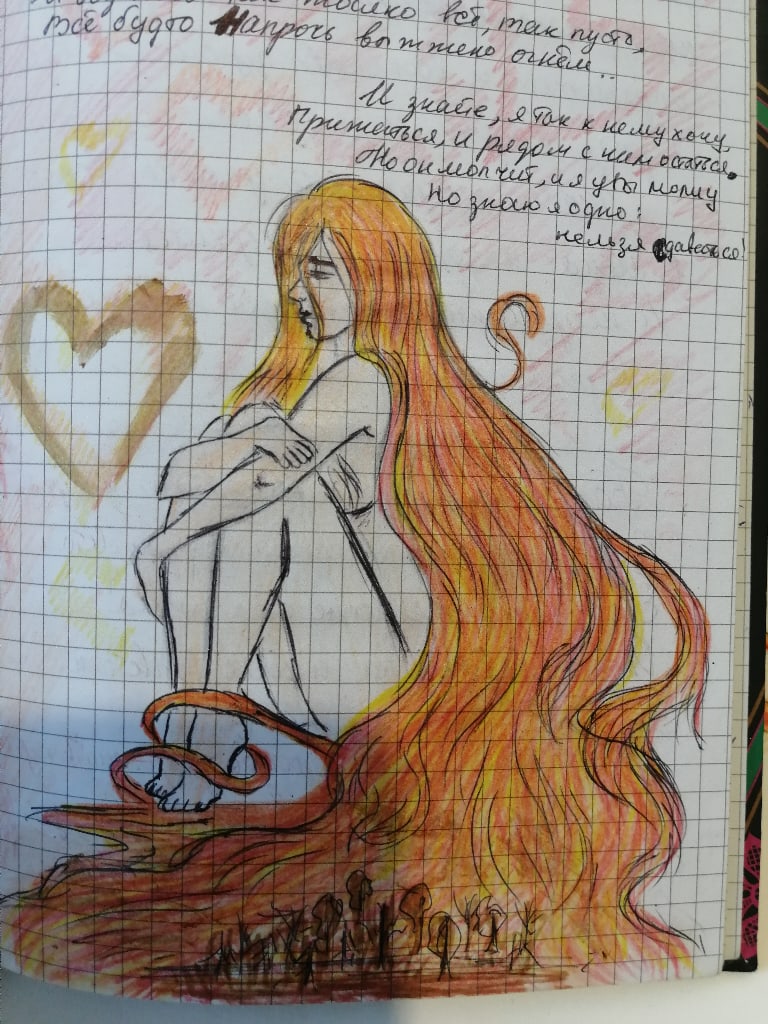 тоскно всё, так пусто,
Всё будто Напрочь выжжено огнём...
И знаете, я так к нему хочу,
Прижаться, и рядом с ним остаться.
Но он молчит, и я увы молчу
Но знаю я одно:
нельзя сдаваться!